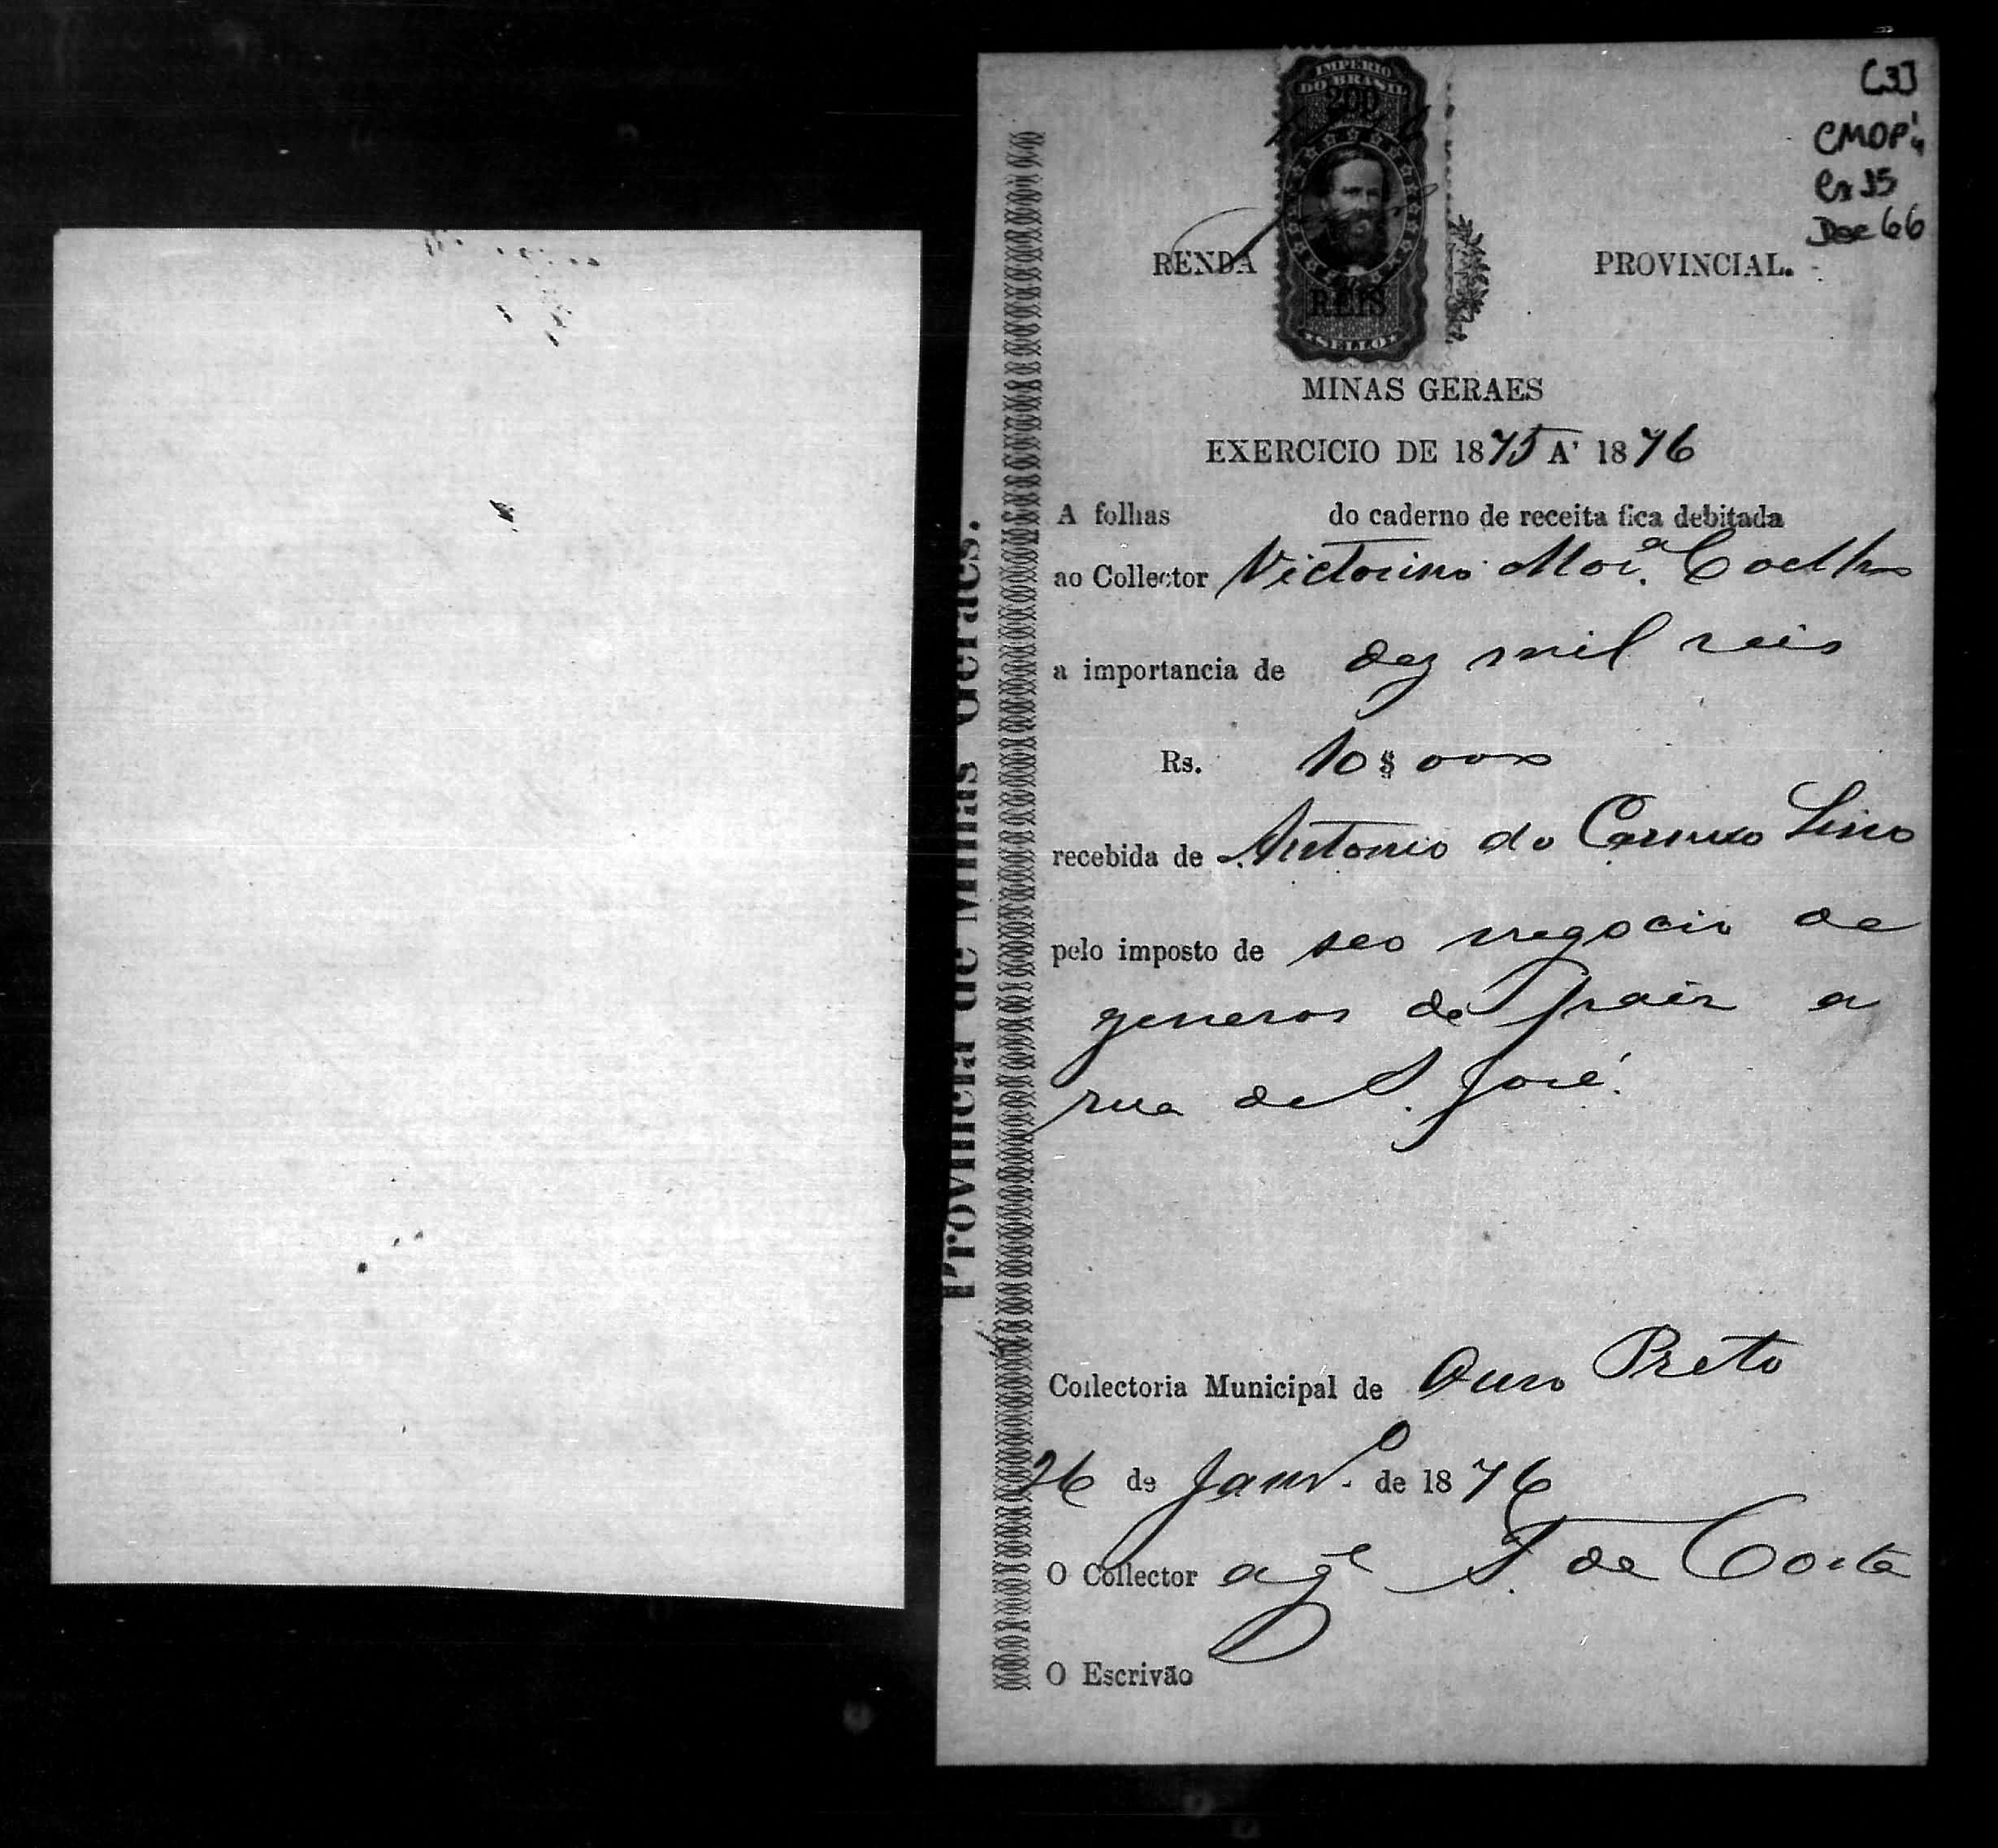 [3]
CMOP
Cx 15
Doc 66
IMPERIO
DO BRASIL
200
REIS
SELLO
RENDA PROVINCIAL.
MINAS GERAES
EXERCICIO DE 1875 A' 1876
A folhas do caderno de receita fica debitada
ao Collector Victorino Mor.ª Coelho
a importancia de dez mil reis
Rs. 10$000
recebida de Antonio do Carmo Lino
pelo imposto de seo negocio de
generos do paiz a
rua de S. José.
Collectoria Municipal de Ouro Preto
26 de Janr.º de 1876
O Collector ag.e T. de Costa
O Escrivão
Provincia de Minas Geraes.